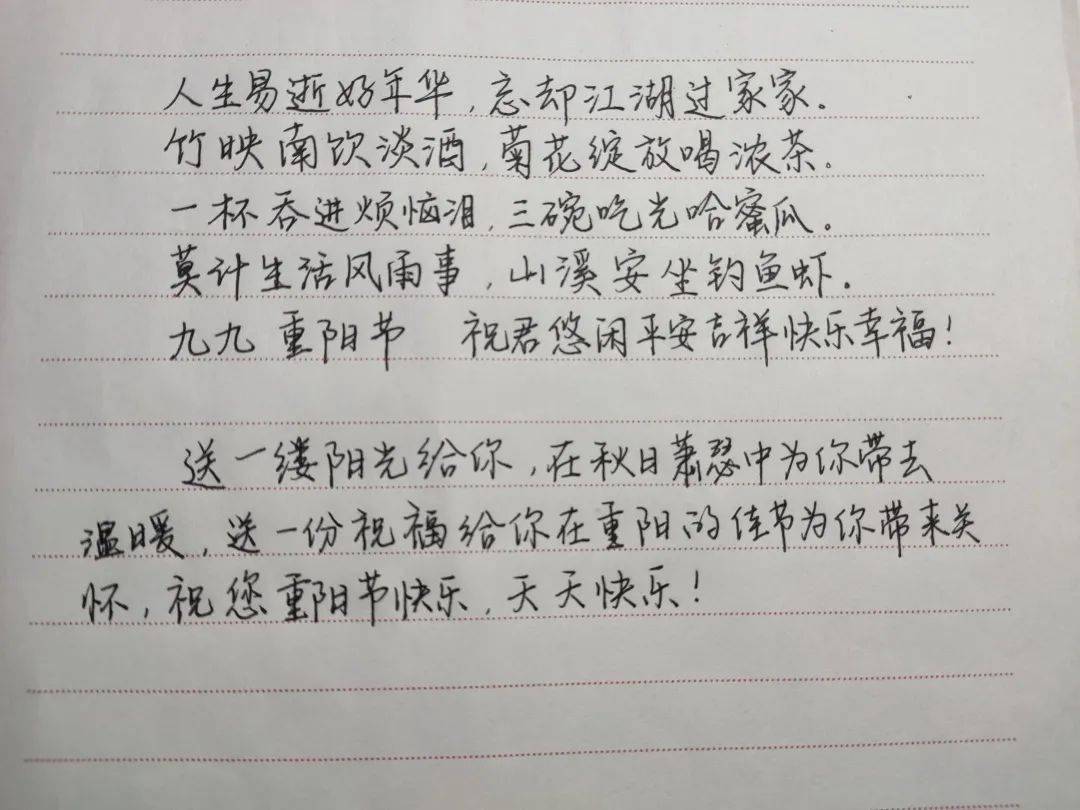 人生易逝好年华,忘却江湖过家家.
竹映南饮淡酒,菊花绽放喝浓茶.
一杯吞进烦恼泪,三碗吃光哈蜜瓜。
莫计生活风雨事,山溪安坐钓鱼虾.
九九重阳节 祝君悠闲平安吉祥快乐幸福!
送一缕阳光给你,在秋日萧瑟中为你带去
温暖,送一份祝福给你在重阳的佳节为你带来关
怀,祝您重阳节快乐,天天快乐!